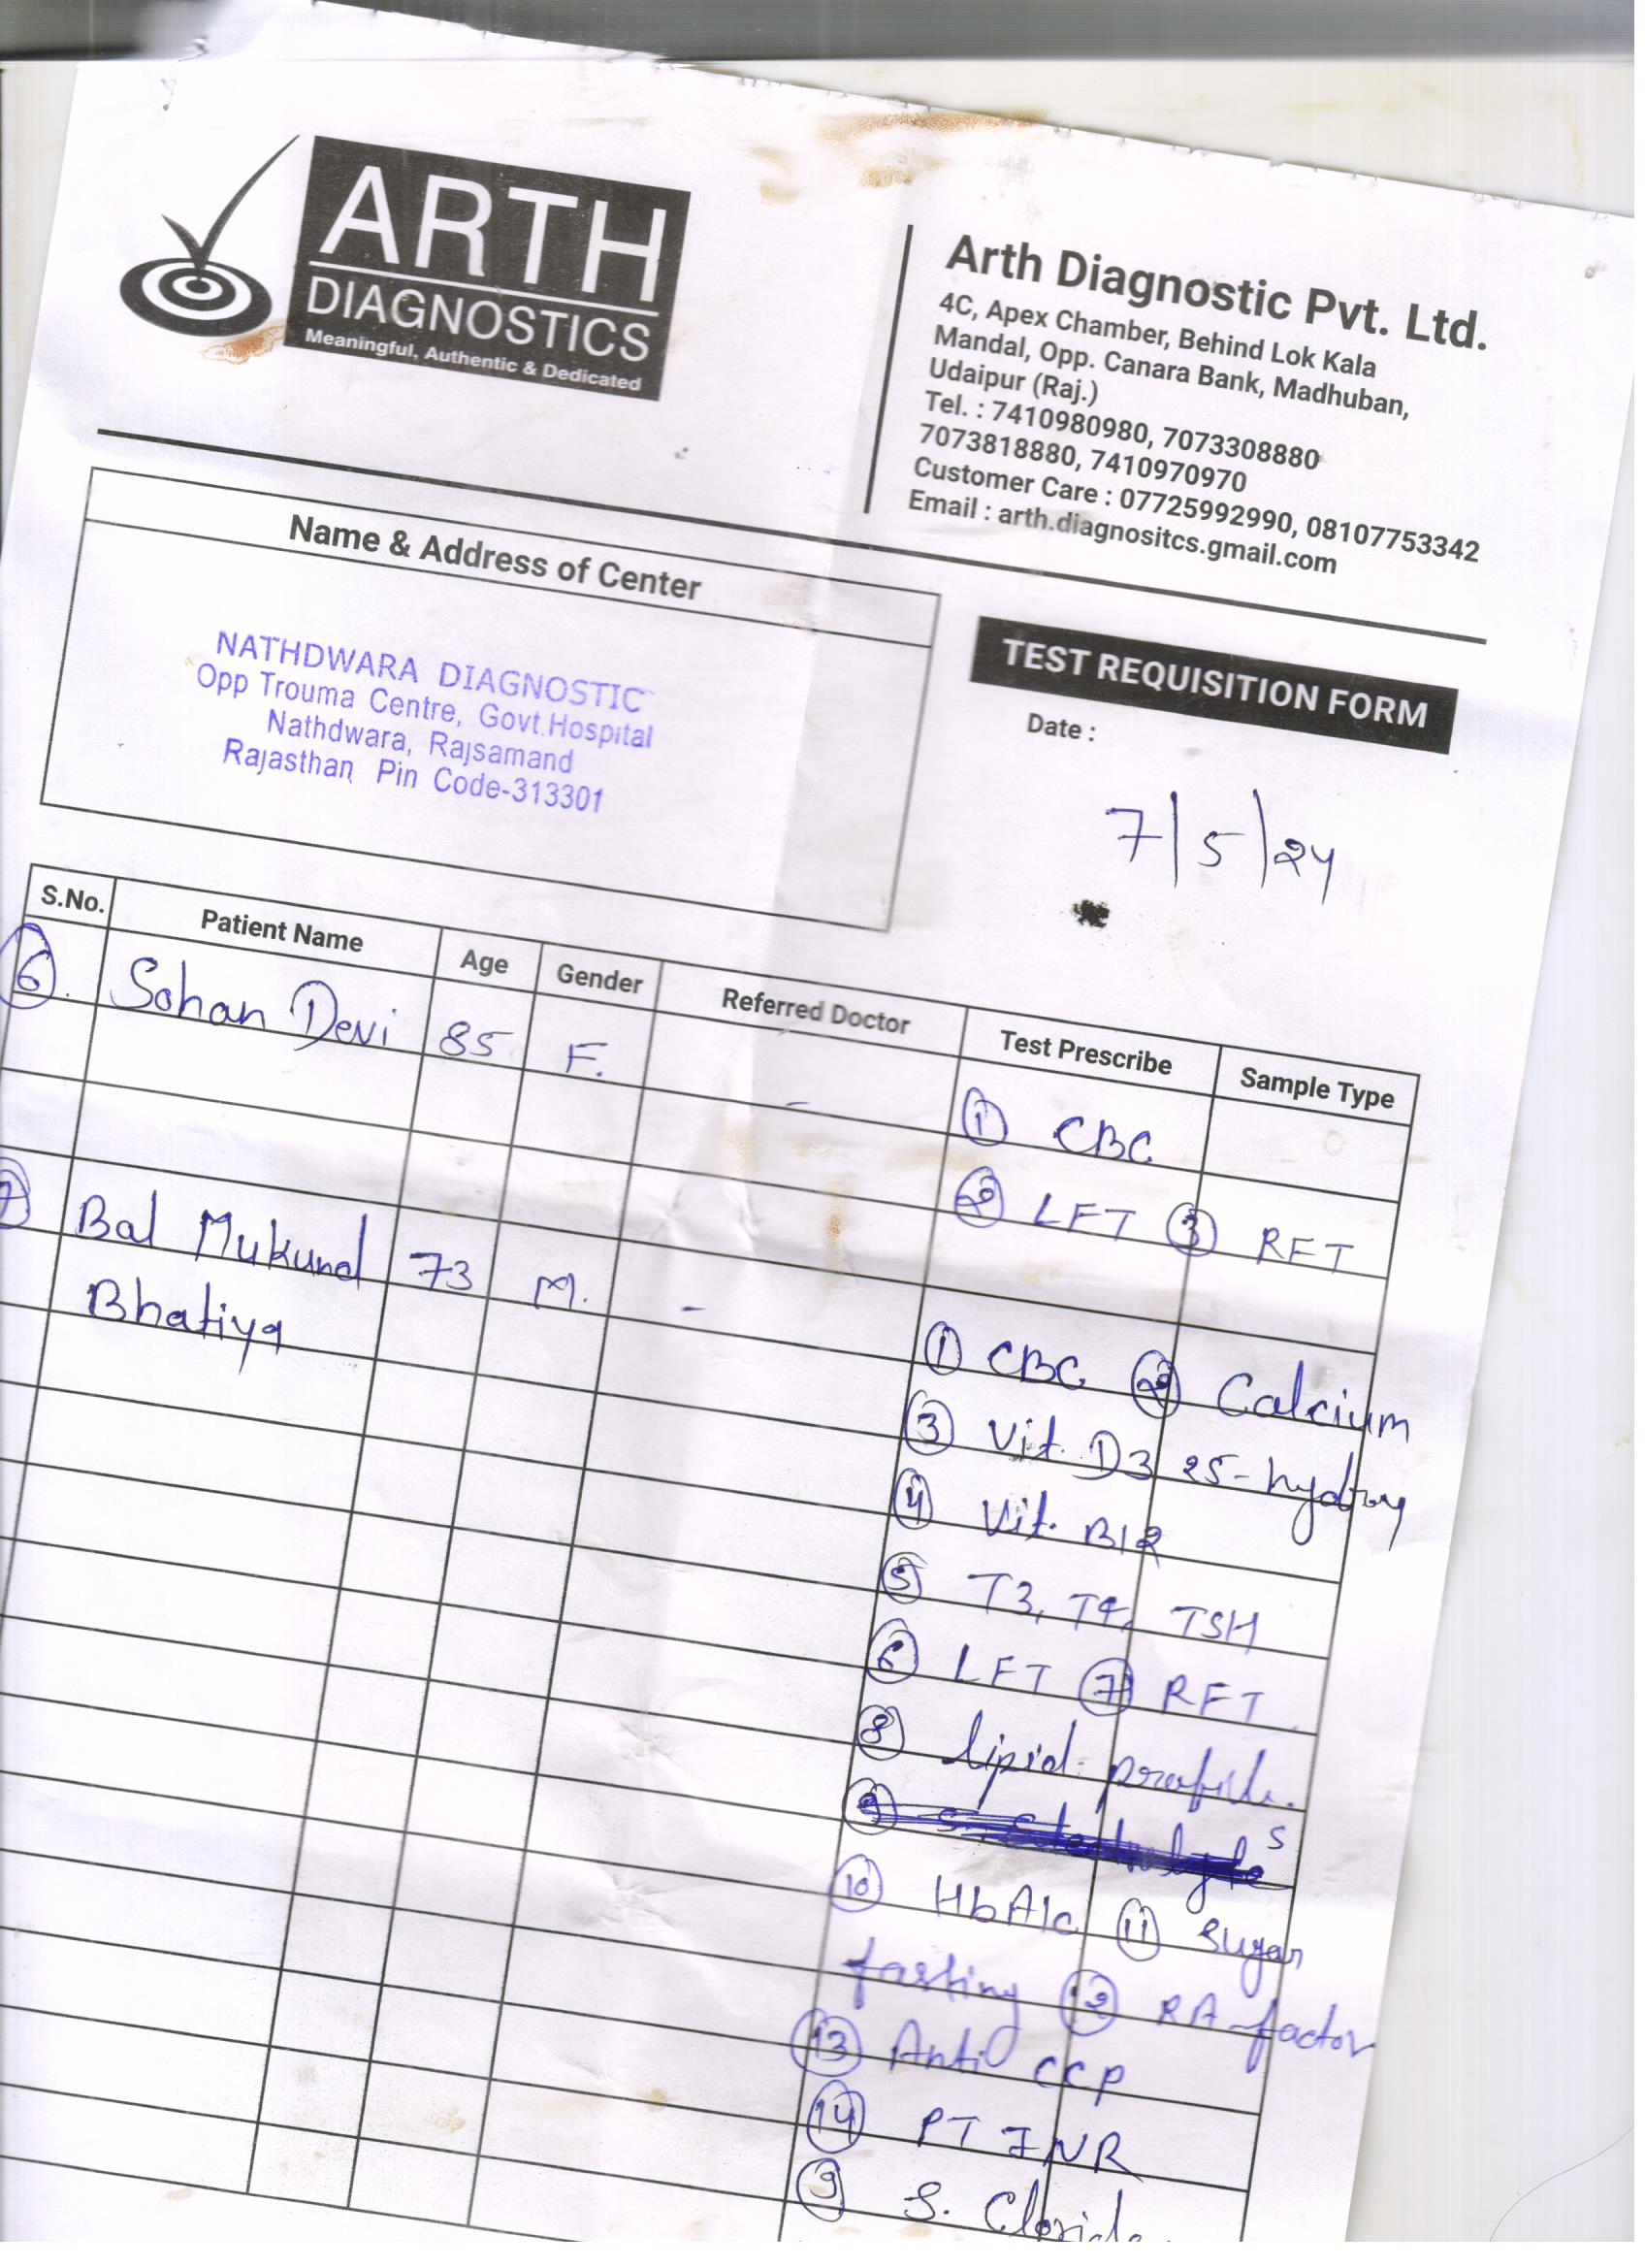 ARTH
DIAGNOSTICS
Meaningful, Authentic & Dedicated
Arth Diagnostic Pvt. Ltd.
4C, Apex Chamber, Behind Lok Kala
Mandal, Opp. Canara Bank, Madhuban,
Udaipur (Raj.)
Tel. : 7410980980, 7073308880
7073818880, 7410970970
Customer Care : 07725992990, 08107753342
Email : arth.diagnositcs.gmail.com
Name & Address of Center
NATHDWARA DIAGNOSTIC
Opp Trouma Centre, Govt.Hospital
Nathdwara, Rajsamand
Rajasthan Pin Code-313301
TEST REQUISITION FORM
Date :
7/5/24
S.No. Patient Name Age Gender Referred Doctor Test Prescribe Sample Type
6. Sohan Devi 85 F. - 1 CBC
2 LFT 3 RFT
7 Bal Mukund 73 M. - 1 CBC 2 Calcium
Bhatiya
3 Vit. D3 25-hydroy
4 Vit. B12
5 T3, T4, TSH
6 LFT 7 RFT.
8 lipid profile.
9 S. Electrolytes
10 HbA1c 11 Sugar
fasting 12 RA-factor
13 Anti CCP
14 PT INR
9 S. Cloride